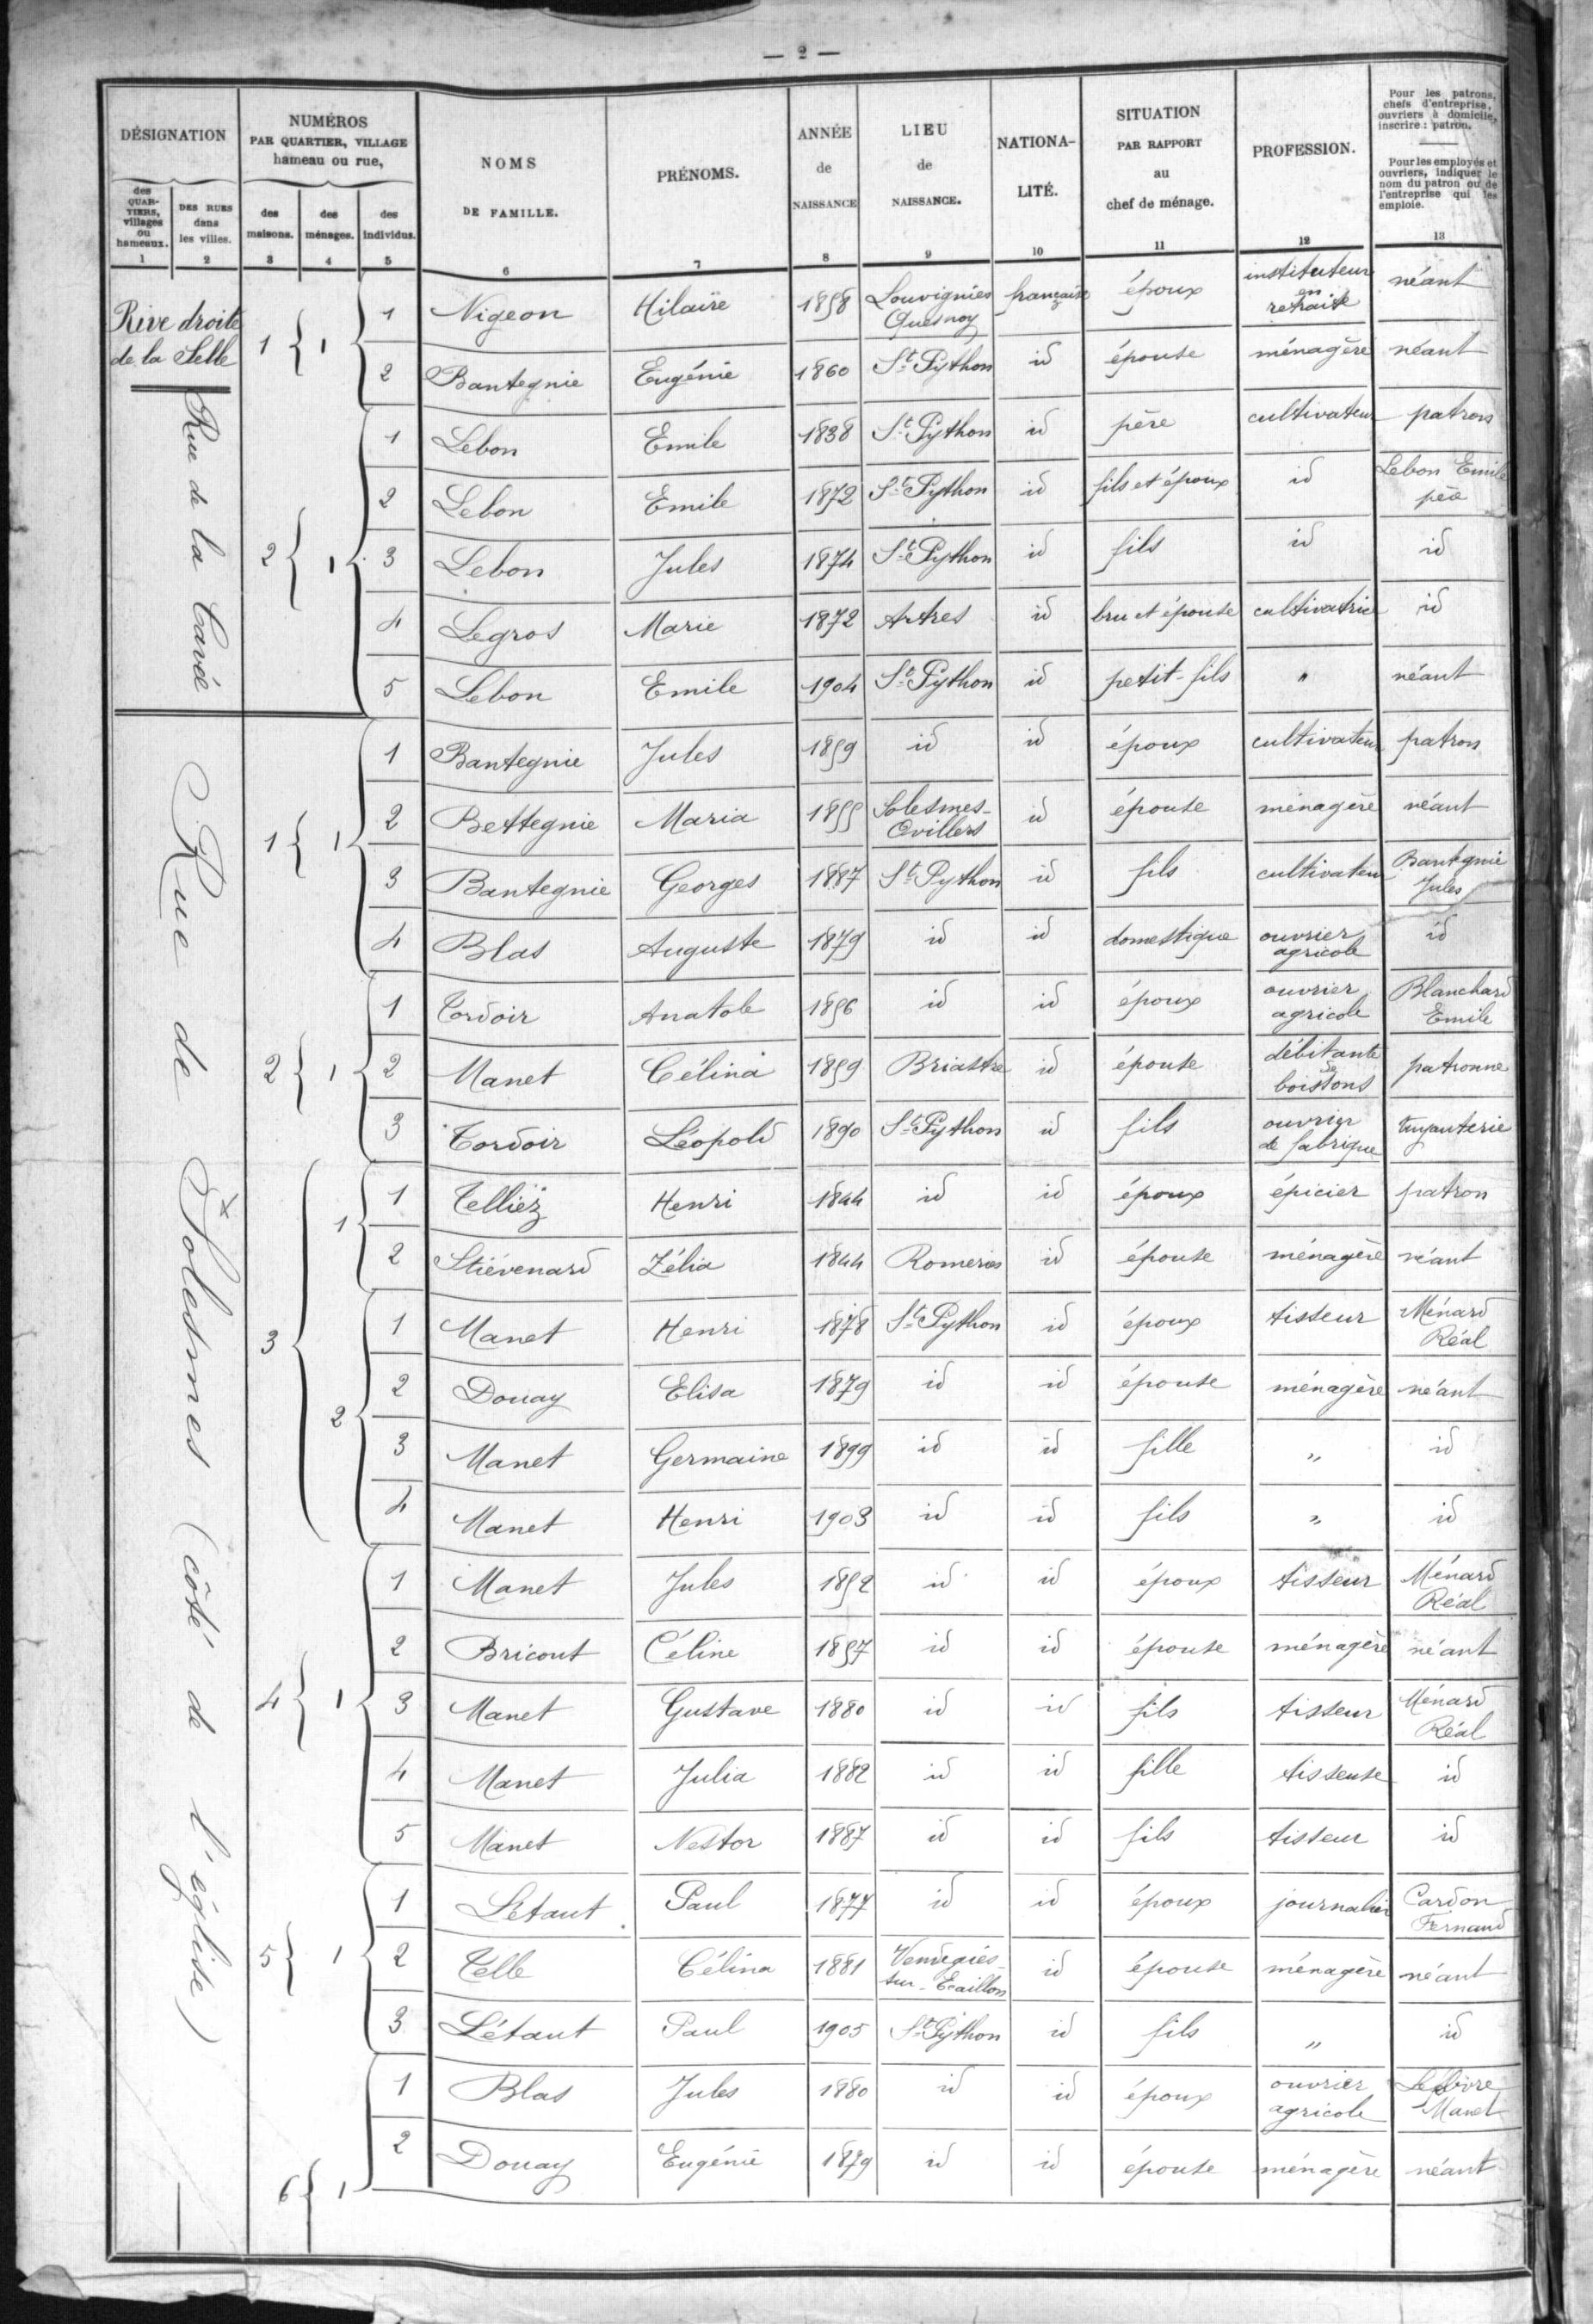 — 2 —
DÉSIGNATION
des QUARTIERS, villages ou hameaux. 1
DES RUES dans les villes. 2
NUMÉROS PAR QUARTIER, VILLAGE hameau ou rue,
des maisons. 3
des ménages. 4
des individus. 5
NOMS DE FAMILLE. 6
PRÉNOMS. 7
ANNÉE de NAISSANCE 8
LIEU de NAISSANCE. 9
NATIONALITÉ. 10
SITUATION PAR RAPPORT au chef de ménage. 11
PROFESSION. 12
Pour les patrons, chefs d'entreprise, ouvriers à domicile, inscrire : patron.
Pour les employés et ouvriers, indiquer le nom du patron ou de l'entreprise qui les emploie. 13
Rive droite de la Selle
Rue de la Cavée
1 1 1 Nigeon Hilaire 1858 Louvignies Quesnoy française époux instituteur en retraite néant
2 Bantegnie Eugénie 1860 St Python id épouse ménagère néant
2 1 1 Lebon Emile 1838 St Python id père cultivateur patron
2 Lebon Emile 1872 St Python id fils et époux id Lebon Emile père
3 Lebon Jules 1874 St Python id fils id id
4 Legros Marie 1872 Artres id bru et épouse cultivatrice id
5 Lebon Emile 1904 St Python id petit-fils " néant
Rue de Solesmes (côté de l'église)
1 1 1 Bantegnie Jules 1859 id id époux cultivateur patron
2 Bettegnie Maria 1855 Solesmes-Ovillers id épouse ménagère néant
3 Bantegnie Georges 1887 St Python id fils cultivateur Bantegnie Jules
4 Blas Auguste 1879 id id domestique ouvrier agricole id
2 1 1 Tordoir Anatole 1856 id id époux ouvrier agricole Blanchard Emile
2 Manet Célina 1859 Briastre id épouse débitante de boissons patronne
3 Tordoir Léopold 1890 St Python id fils ouvrier de fabrique tuyauterie
3 1 1 Telliez Henri 1844 id id époux épicier patron
2 Stiévenard Zélia 1844 Romeries id épouse ménagère néant
2 1 Manet Henri 1878 St Python id époux tisseur Ménard Réal
2 Douay Elisa 1879 id id épouse ménagère néant
3 Manet Germaine 1899 id id fille " id
4 Manet Henri 1903 id id fils " id
4 1 1 Manet Jules 1852 id id époux tisseur Ménard Réal
2 Bricout Céline 1857 id id épouse ménagère néant
3 Manet Gustave 1880 id id fils tisseur Ménard Réal
4 Manet Julia 1882 id id fille tisseuse id
5 Manet Nestor 1887 id id fils tisseur id
5 1 1 Létaut Paul 1877 id id époux journalier Cardon Fernand
2 Telle Célina 1881 Vendegies-sur-Ecaillon id épouse ménagère néant
3 Létaut Paul 1905 St Python id fils " id
6 1 1 Blas Jules 1880 id id époux ouvrier agricole Manet
2 Douay Eugénie 1879 id id épouse ménagère néant